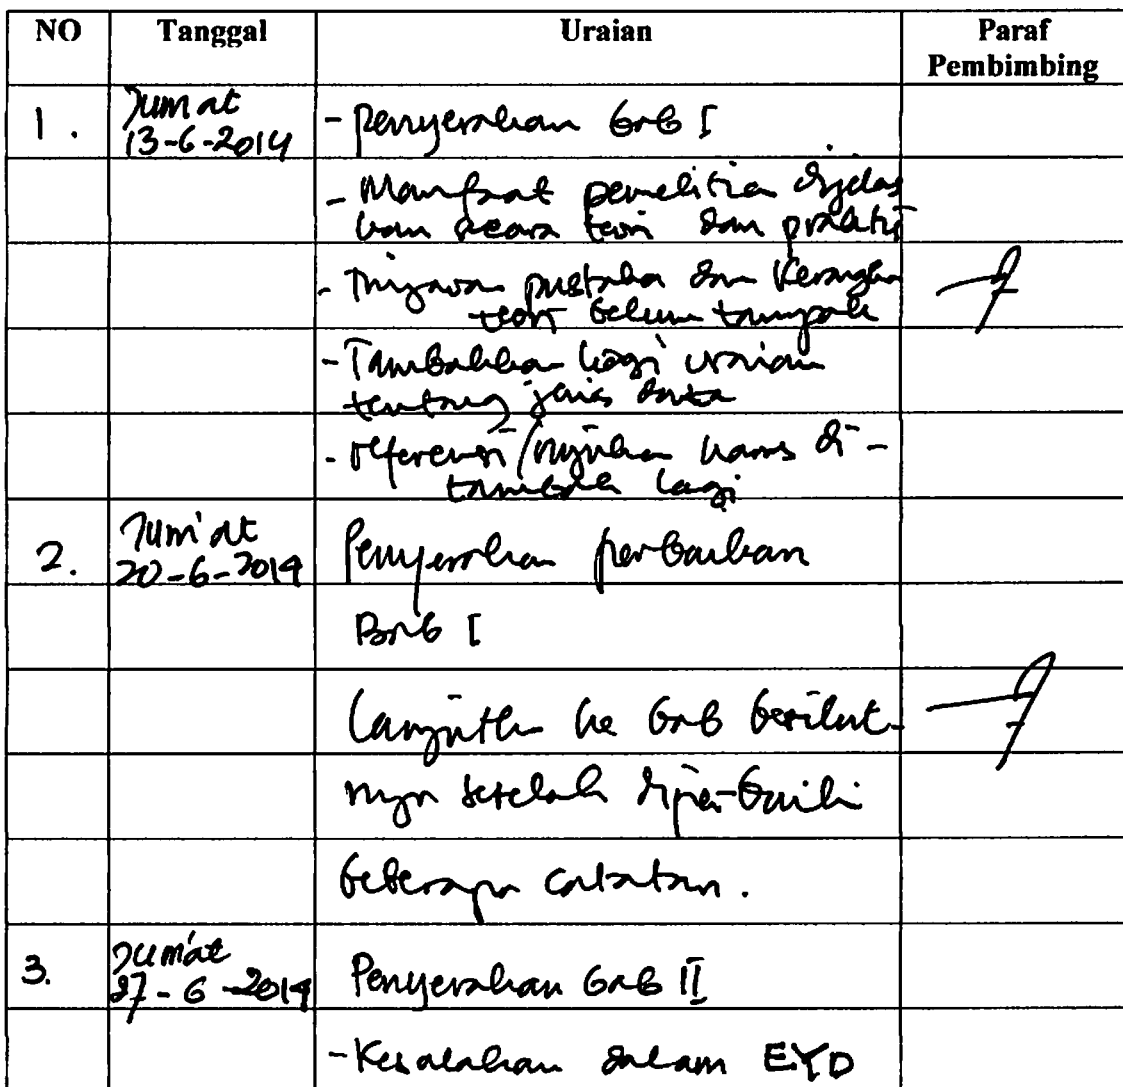 NO Tanggal Uraian Paraf
Pembimbing
1. Jum'at
13-6-2014
- Penyerahan bab I
- Manfaat penelitia dijelas
kan secara teori dan praktis
- Tinjauan pustaka dan Kerangka
teori belum tampak
- Tambahkan lagi uraian
tentang jenis data
- referensi/rujukan harus di-
tambah lagi
2. Jum'at
20-6-2014
Penyerahan perbaikan
Bab I
Lanjutkn ke bab berikut-
nya setelah diper-baiki
beberapa catatan.
3. Jum'at
27-6-2014
Penyerahan bab II
- Kesalahan dalam EYD